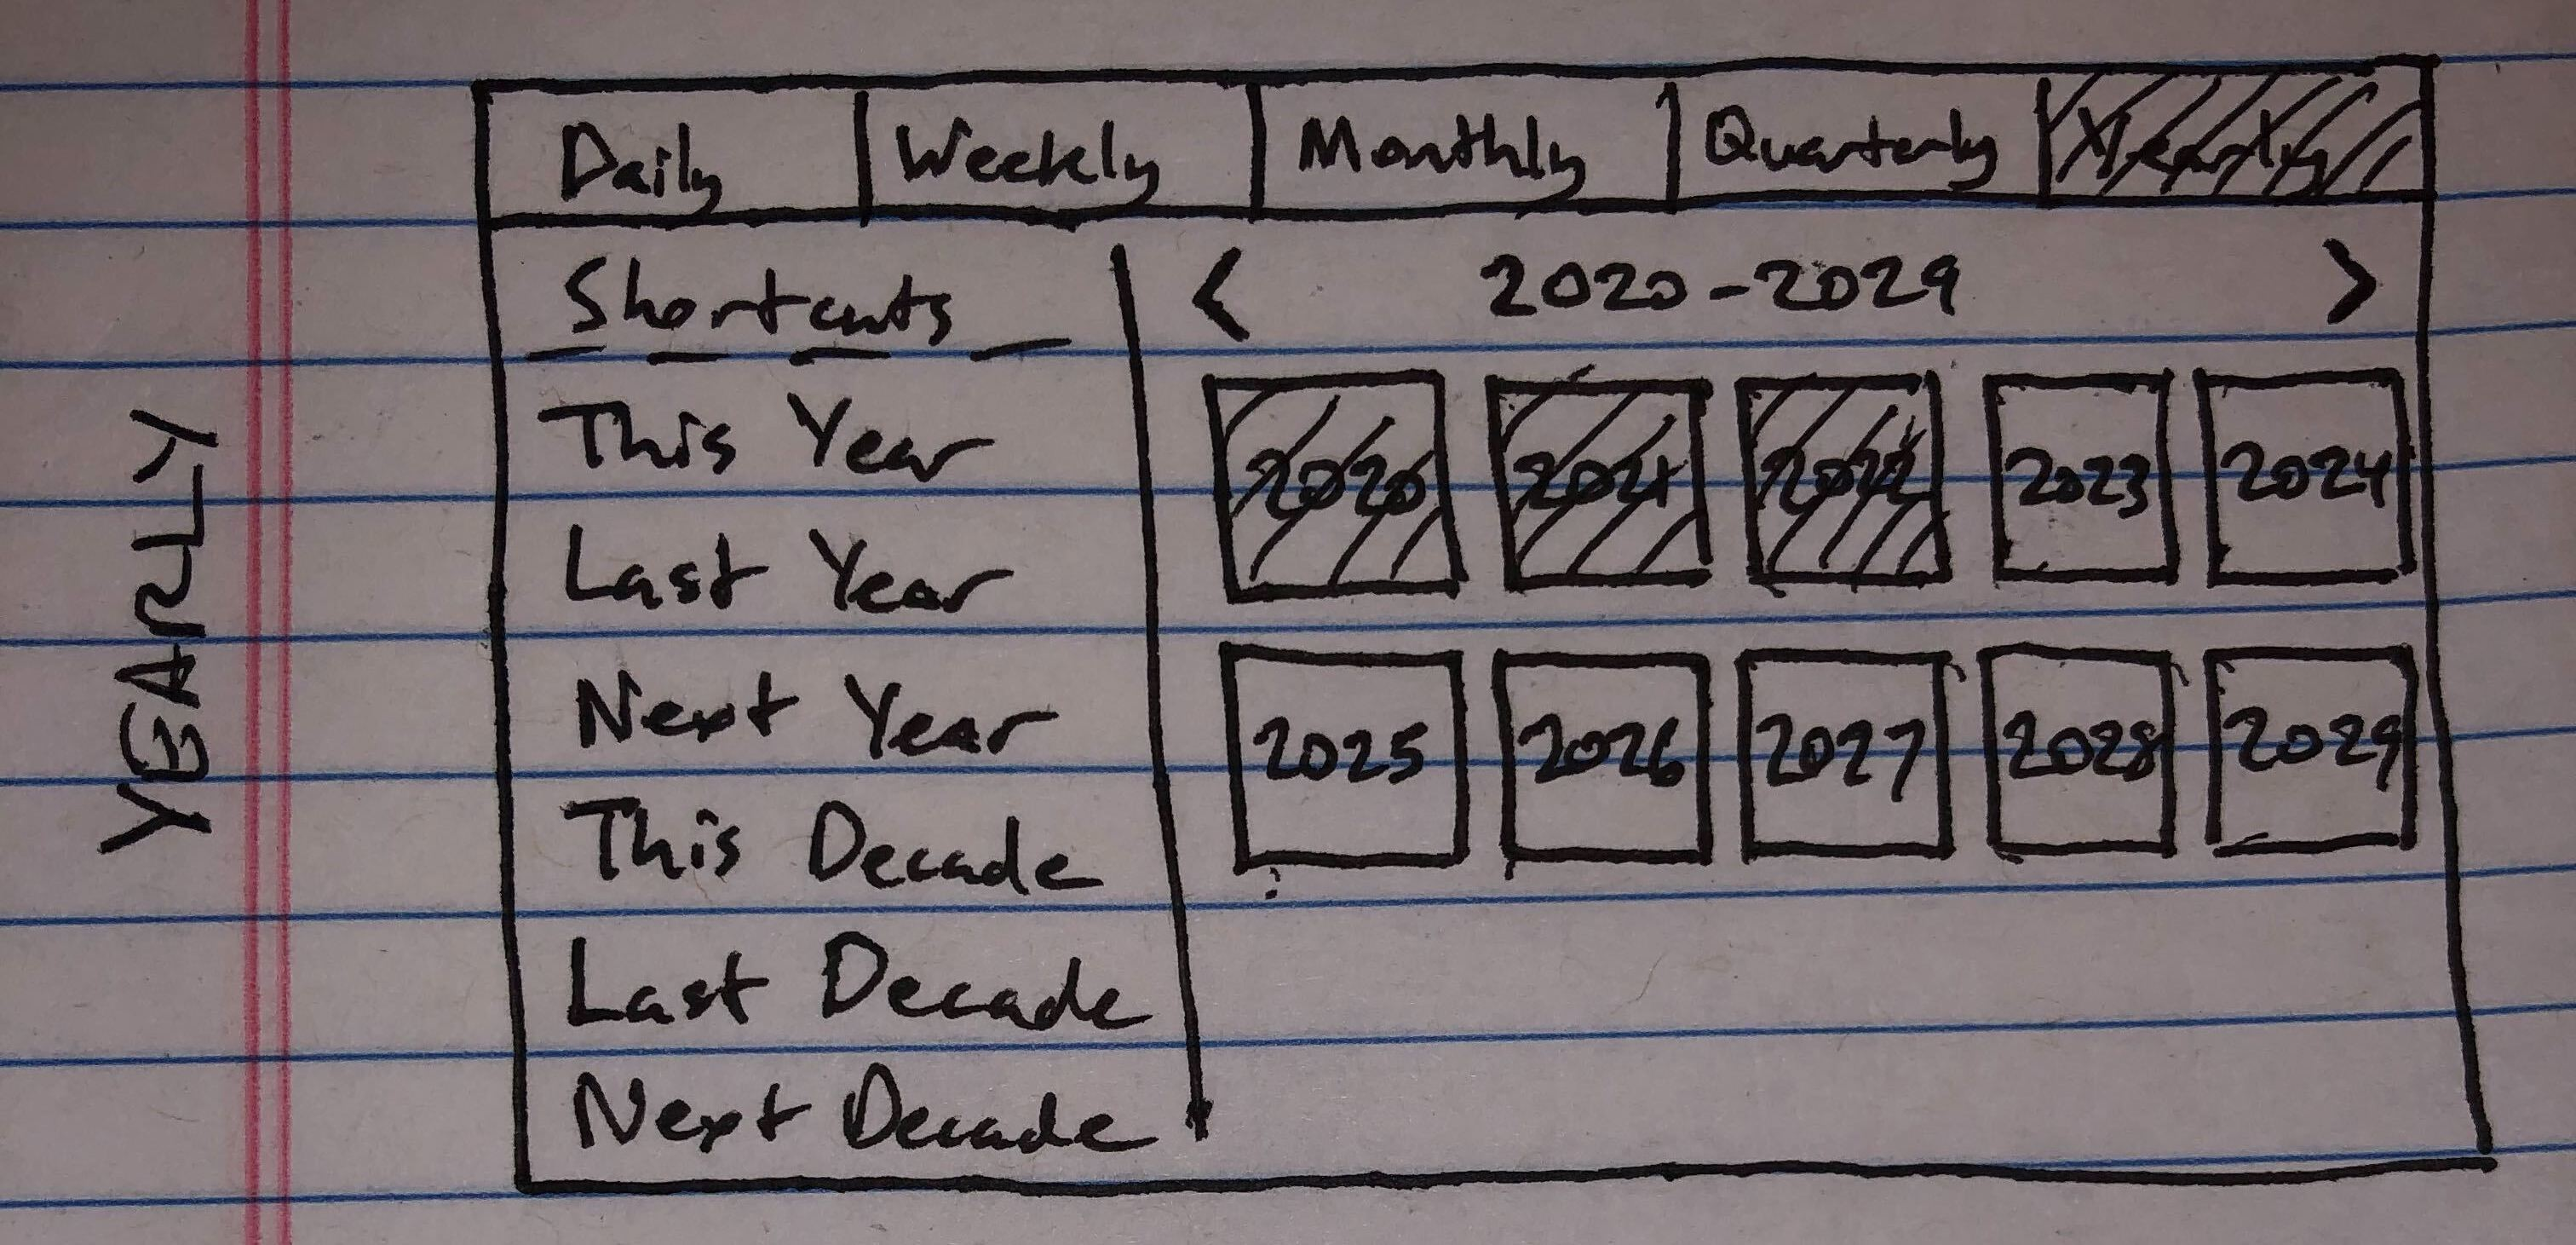 YEARLY
Daily Weekly Monthly Quarterly Yearly
Shortcuts
< 2020-2029 >
This Year
Last Year
Next Year
This Decade
Last Decade
Next Decade
2020 2021 2022 2023 2024
2025 2026 2027 2028 2029